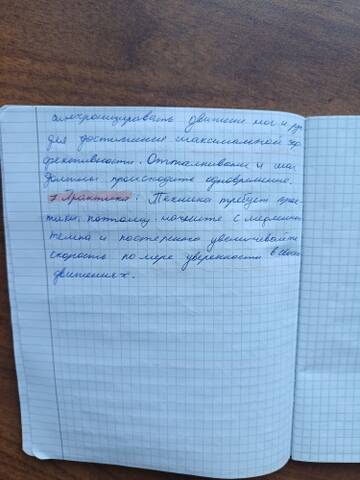 синхронизировать движение ног и рук
для достижения максимальной эф
фективности. Отталкивание и шаг
должны происходить одновременно.
7 Практика: Техника требует прак
тики, поэтому начните с медленного
темпа и постепенно увеличивайте
скорость по мере уверенности в своих
движениях.